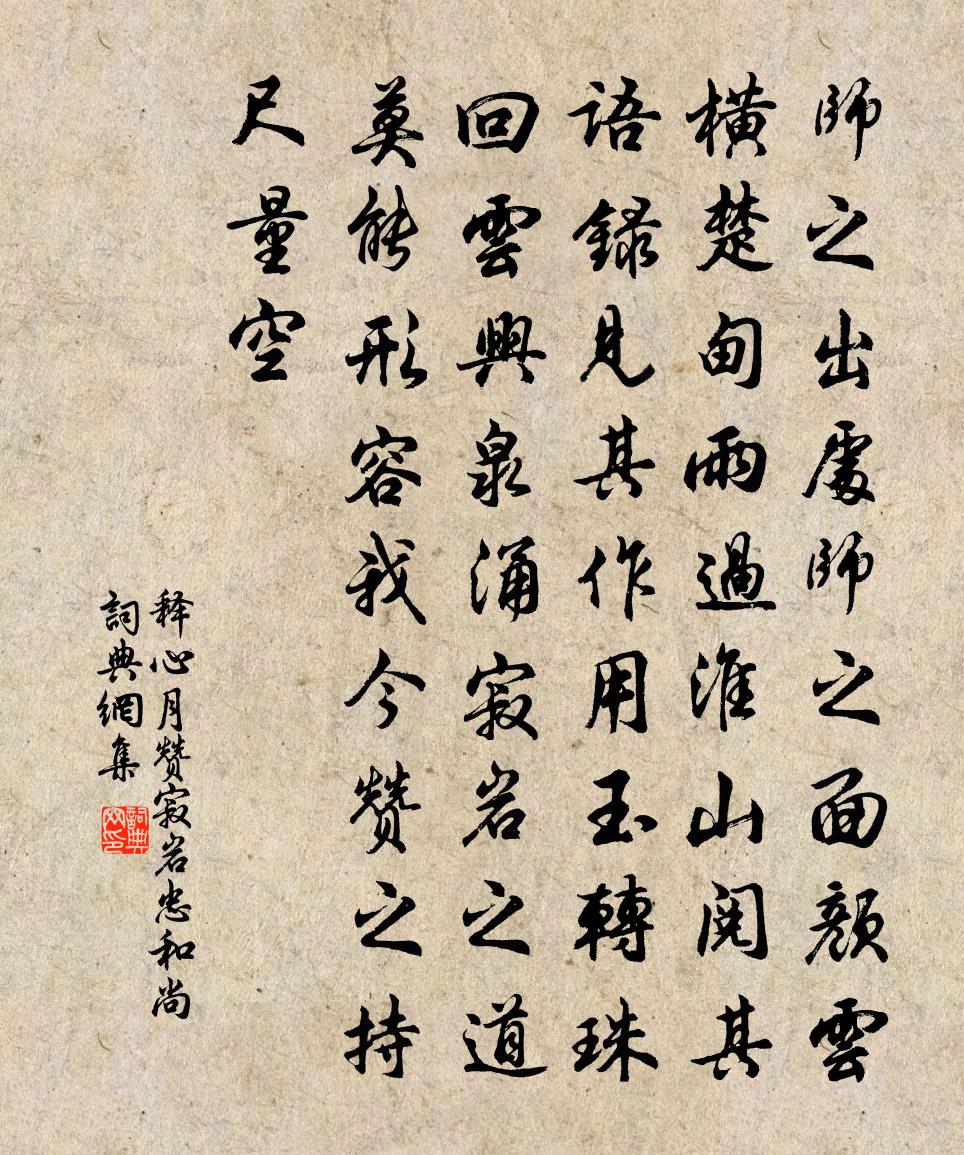 師之出處師之面顏雲
橫楚甸雨過淮山閱其
語録見其作用玉轉珠
回雲興泉涌寂岩之道
莫能形容我今贊之持
尺量空
释心月贊寂岩忠和尚
詞典網集
詞典網印